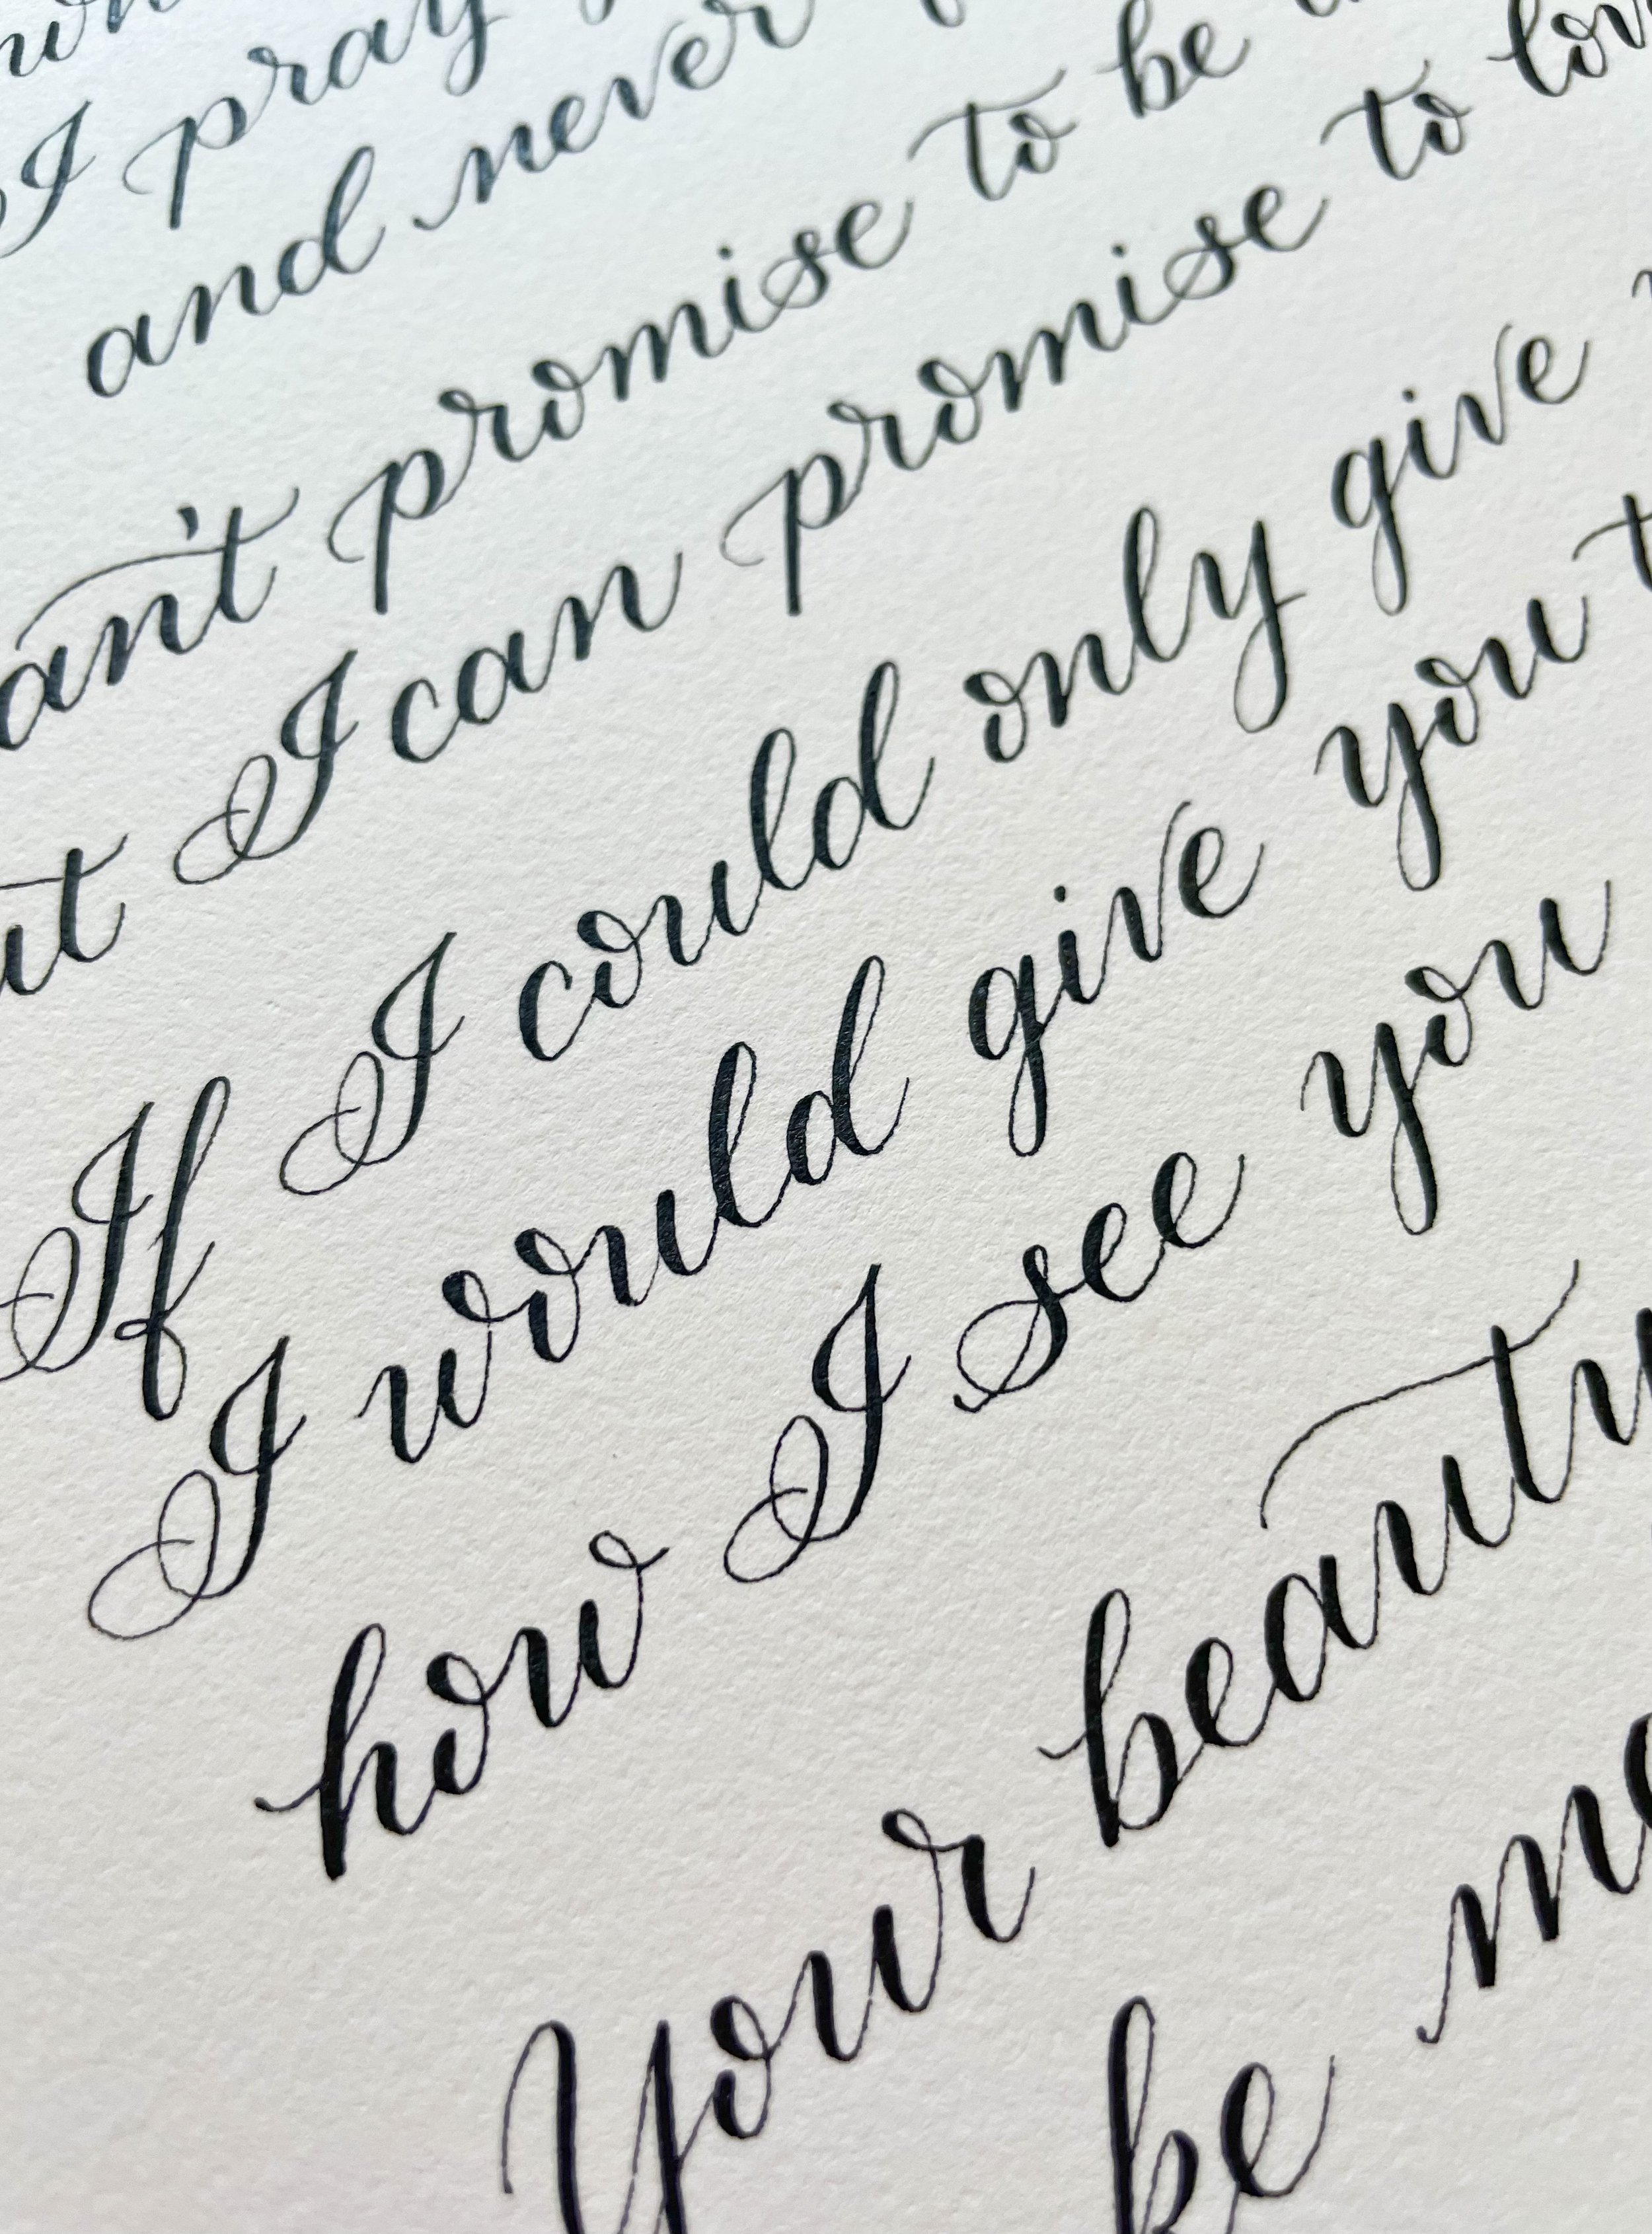 I pray
and never
can't promise to be
I can promise to
If I could only give
I would give you
how I see you
Your
be